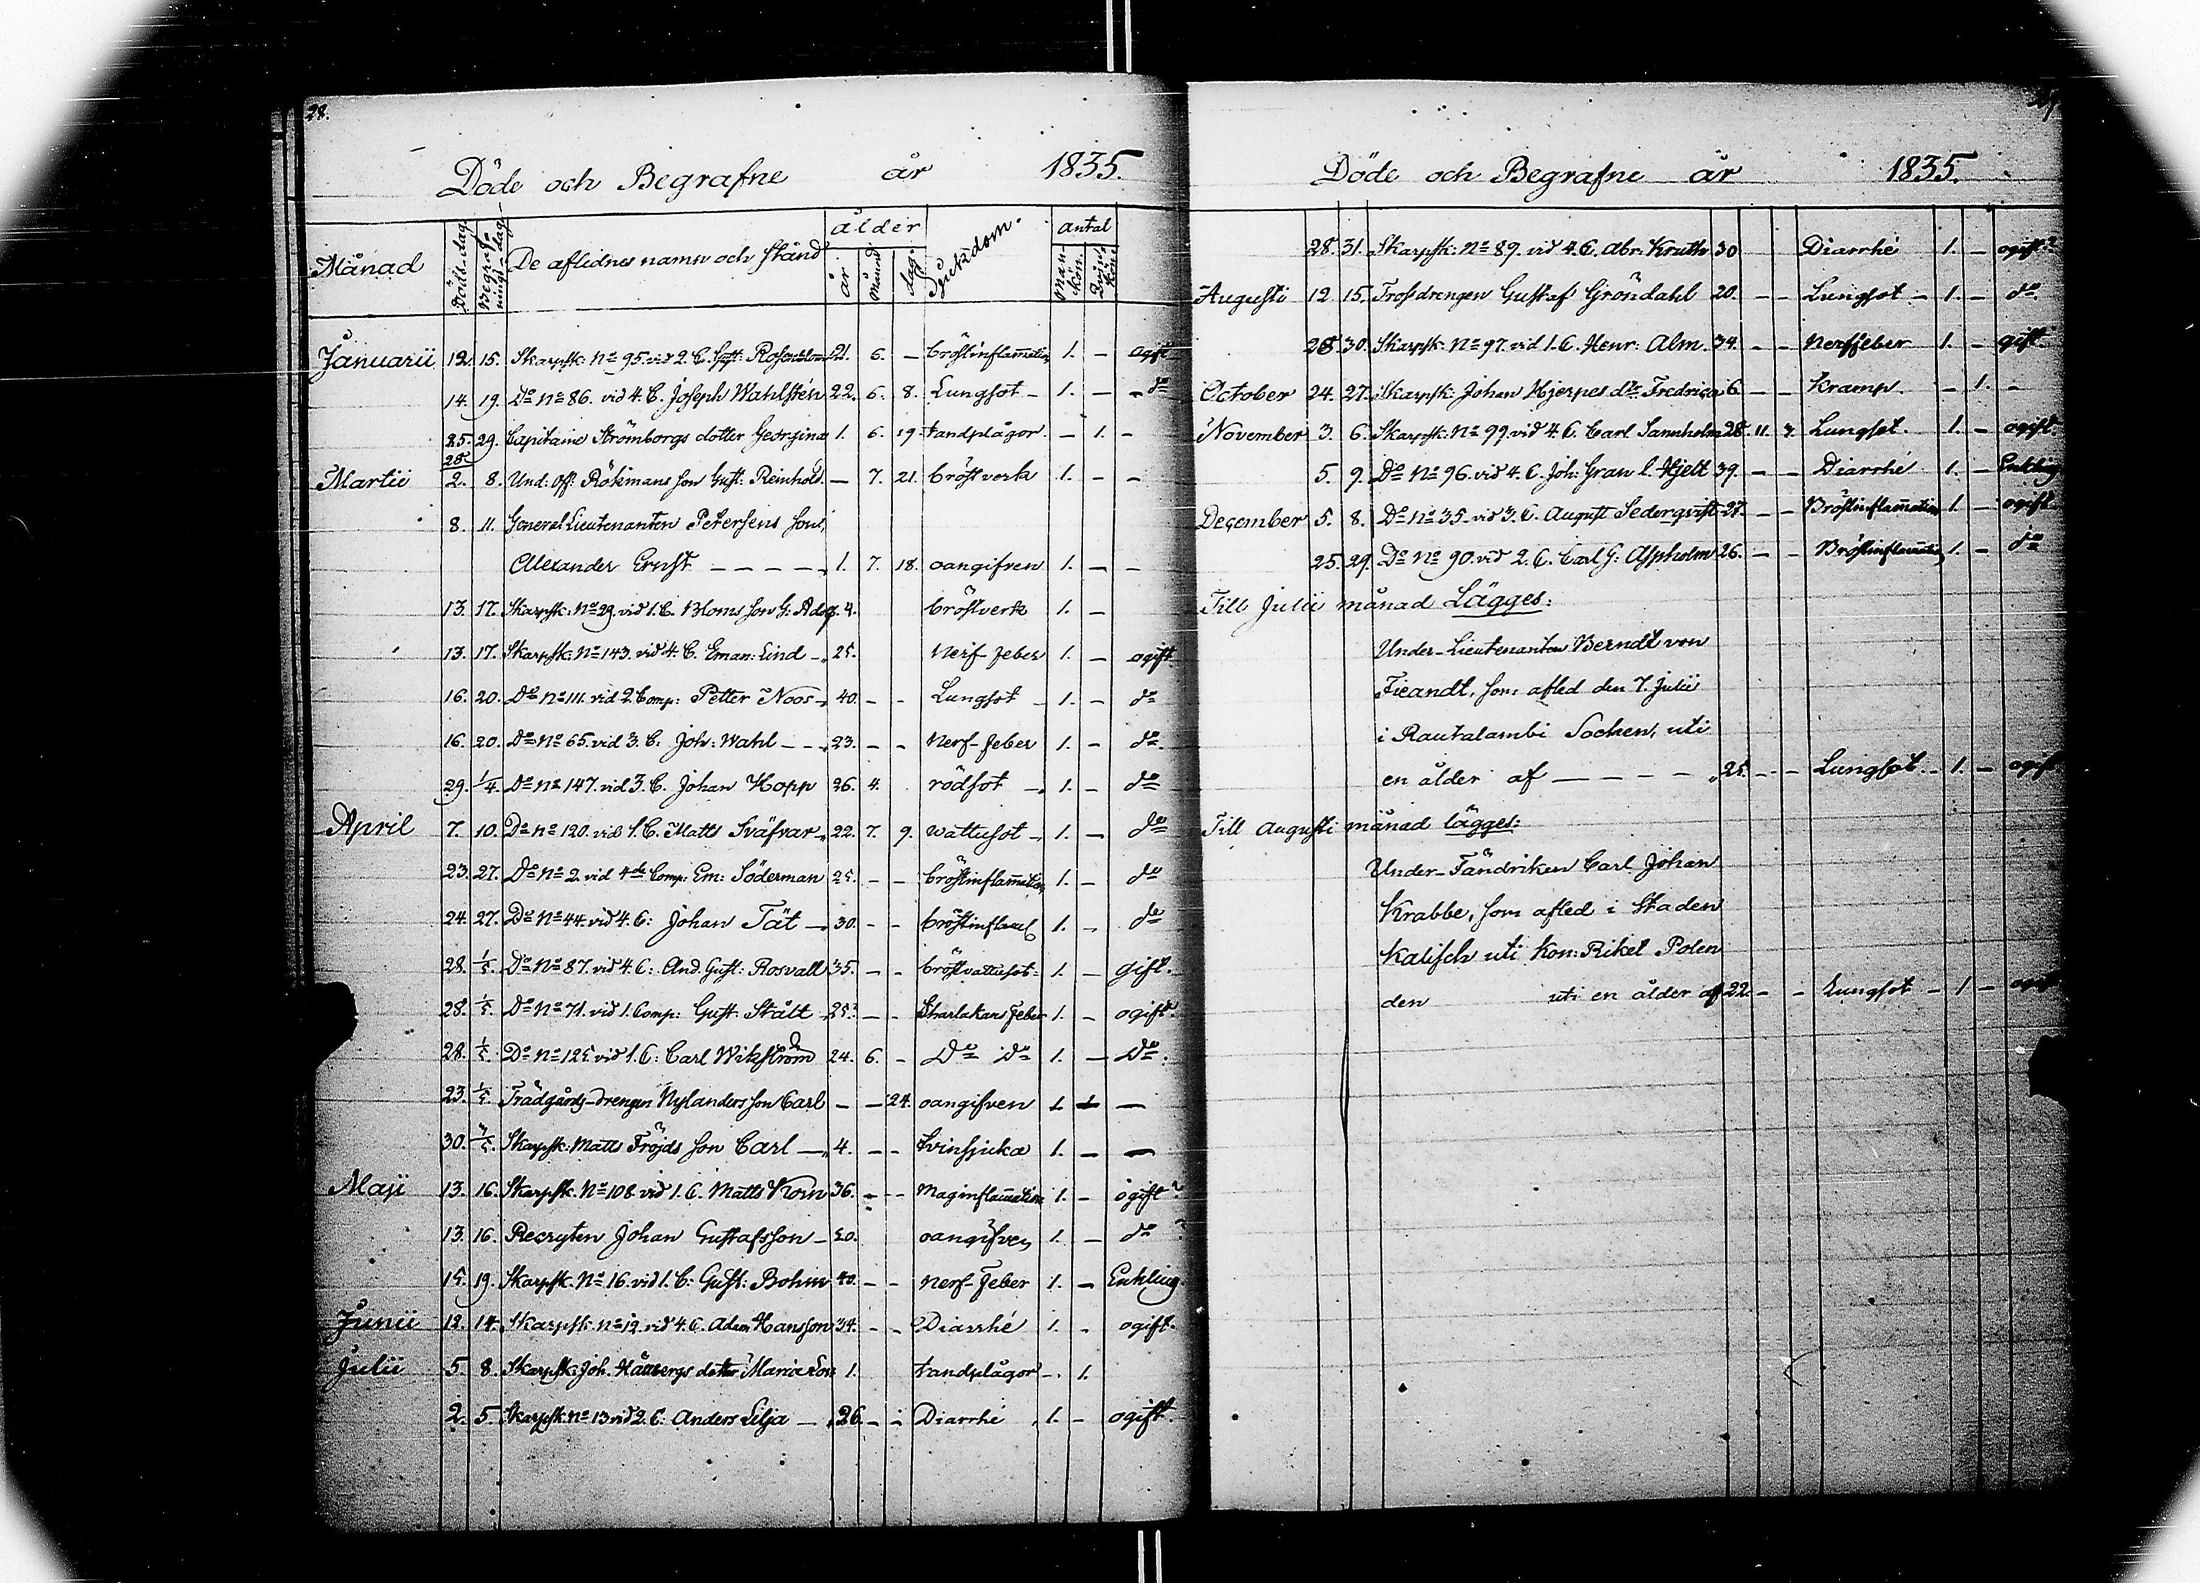 28.
Döde och Begrafne år 1835.
Månad Dödsdag Begrafnings-dag De aflidnes namn och stånd ålder år månad dag. Sjukdom. antal Mankön. Qvinkön.
Januarii 12. 15. Skarpsk: No 95. vid 2. C. 21. 6. — bröstinflam̄ation 1. — ogift
14. 19. Do No 86. vid 4. C. Joseph Wahlstén 22. 6. 8. Lungsot — 1. — — do
25. 29. Capitaine Strömborgs dotter Georgina 1. 6. 19. tandplågor. — 1. —
28
Martii 2. 8. Und: Off: Rökmans son Gust: Reinhold. — 7. 21. bröstverk 1. — —
8. 11. General Lieutenanten Petersens son,
Alexander Ernst — — — — 1. 7. 18. oangifven 1. — —
13. 17. Skarpsk: No 29. vid 1. C. Bloms son G: Adolf. 4. bröstverk 1. —
13. 17. Skarpsk: No 143. vid 4. C. Eman: Lind — 25. Nerf-feber 1. — ogift
16. 20. Do No 111. vid 2. Comp: Petter Noos — 40. — — Lungsot — 1. — do
16. 20. Do No 65. vid 3. C. Joh: Wahl — — 23. — — Nerf-feber 1. — do.
29. 1/4. Do No 147. vid 3. C. Johan Hopp 26. 4. rödsot — 1. — do
April 7. 10. Do No 120. vid 1. C. Matts Sväfvar — 22. 7. 9. wattusot — 1. — do
23. 27. Do No 2. vid 4de Comp: Em: Söderman 25. — — bröstinflam̄ation 1. — do
24. 27. Do No 44. vid 4. C: Johan Tät — 30. — — bröstinflam̄ 1. — do
28. 1/5. Do No 87. vid 4. C: And. Gust: Rosvall 35. — — bröstvattusot. 1. — gift.
28. 1/5. Do No 71. vid 1. Comp: Gust: Stålt 25. — — Skarlakans feber 1. — ogift?
28. 1/5. Do No 125. vid 1. C: Carl Wikström 24. 6. — Do do 1. — Do.
23. 1/5. Trädgårds-drengen Nylanders son Carl — — 24. oangifven 1 1 —
30. 3/5. Skarpsk: Matts Fröjds son Carl — 4. — — tvinsjuka 1. — —
Maji 13. 16. Skarpsk. No 108. vid 1. C. Matts Korn 36. — — Maginflam̄ation 1. — ogift?
13. 16. Recryten Johan Gustafsson — 20. oangifven 1. — do ?
15. 19. Skarpsk. No 16. vid 1. C: Gust: Bohm 40. — — Nerf-Feber 1. — Enkling.
Junii 12. 14. Skarpsk. No 12. vid 4. C. Adam Hansson 34. — — Diarrhé 1. — ogift.
Julii 5. 8. Skarpsk: Joh. dotter Maria 1. tandplågor —. 1.
2. 5. Skarpsk: No 13 vid 2. C: Anders Lilja — 26. — — Diarrhé 1. — ogift.
Döde och Begrafne år 1835.
28. 31. Skarpsk: No 89. vid 4. C. Abr. Kruth 30 Diarrhé 1. — ogift?
Augusti 12 15. Trossdrengen Gustaf Gröndahl 20. — — Lungsot — 1. — do.
28. 30. Skarpsk: No 97. vid 1. C. Henr: Alm. 34. — — Nerffeber 1. — gift
October 24. 27. Skarpsk: Johan Hjerpes dtr Fredrica 6. — — Kramp. — 1. —
November 3. 6. Skarpsk: No 99. vid 4. C. Carl Sannholm 28. 11. 7. Lungsot. 1. — ogift.
5. 9. Do No 96. vid 4. C. Joh: Gran l. Hjelt 39. — — Diarrhé 1. — Enkling
December 5. 8. Do No 35. vid 3. C. August Sederqvist 27. — — Bröstinflam̄ation 1. — ogift.
25. 29. Do No 90. vid 2. C. Carl G: Aspholm 26. — — Bröstinflam̄ation 1. — do
Till Julii månad Lägges:
Under-Lieutenanten Berndt von
Fieandt, som afled den 7. Julii
i Rautalambi Socken, uti
en ålder af — — — — 25. — — Lungsot. — 1. — ogift
Till Augusti månad lägges:
Under-Fändriken Carl Johan
Krabbe, som afled i Staden
Kalisch uti Kon: Riket Polen
den uti en ålder af 22 — — Lungsot — 1 — ogift